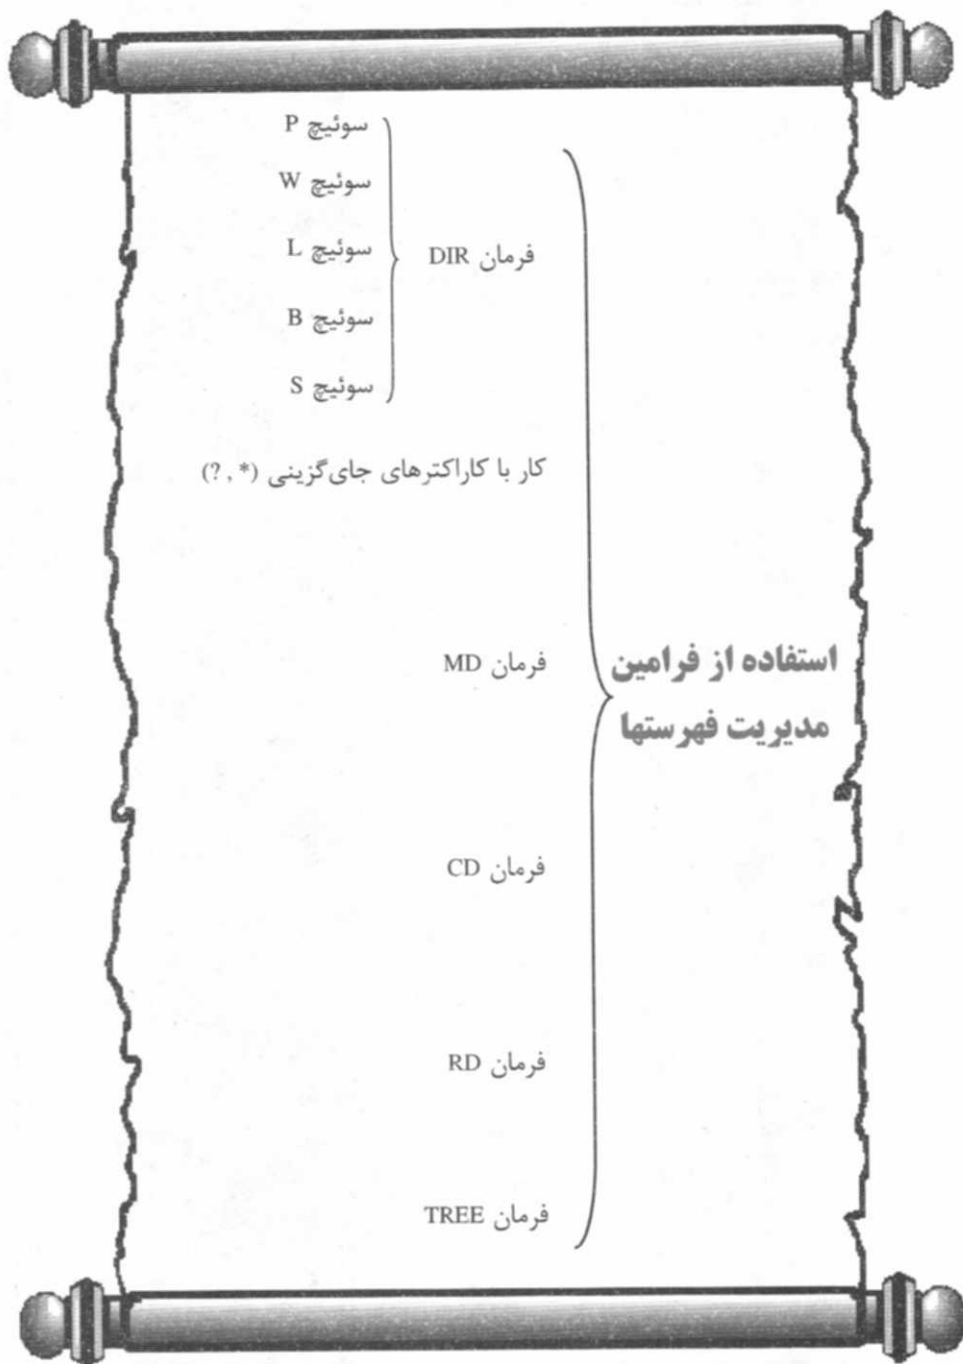 استفاده از فرامین
مدیریت فهرستها
فرمان DIR
سوئیچ P
سوئیچ W
سوئیچ L
سوئیچ B
سوئیچ S
کار با کاراکترهای جای‌گزینی (* , ?)
فرمان MD
فرمان CD
فرمان RD
فرمان TREE